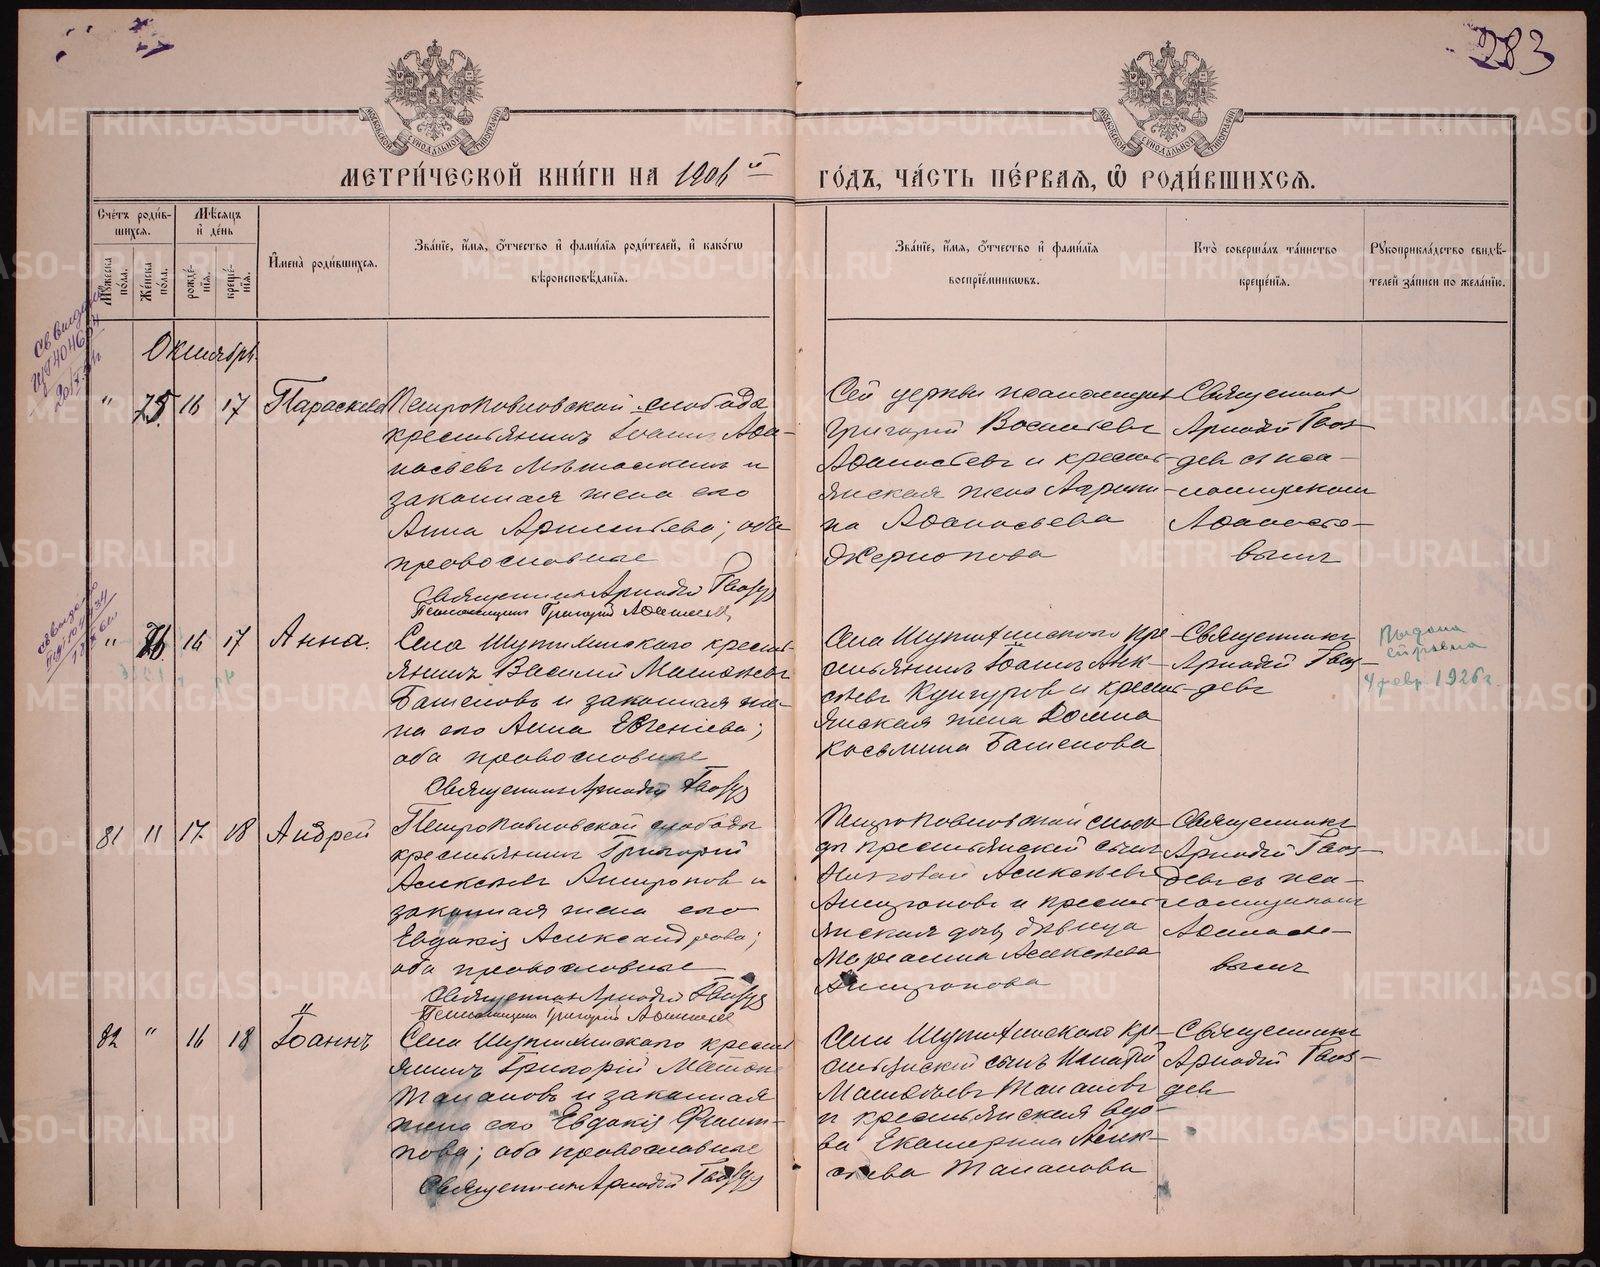 283
МОСКОВСКОЙ СѴНОДАЛЬНОЙ ТИПОГРАФІИ
МОСКОВСКОЙ СѴНОДАЛЬНОЙ ТИПОГРАФІИ
МЕТРИ́ЧЕСКОЙ КНИ́ГИ НА 1906 й ГО́ДЪ, ЧА́СТЬ ПЕ́РВАЯ, Ѡ РОДИ́ВШИХСЯ.
Сче́тъ роди́в-
шихся.
Мѣсяцъ
и де́нь
Му́жеска по́ла.
Же́нска по́ла.
рожде́-
нїя.
креще́-
нїя.
И́мена̀ роди́вшихся.
Зва́нїе, и́мя, ѻ́тчество и҆ фами́лїя роди́телей, и҆ како́гѡ
вѣроисповѣ́данїя.
Зва́нїе, и́мя, ѻ́тчество и҆ фами́лїя
воспрїе́мниковъ.
Кто̀ соверша́лъ та́инство
креще́нїя.
Рꙋкоприкла́дство свидѣ́-
телей за́писи по жела́нїю.
Октябрь.
" 75. 16 17 Параскева
Петропавловской слободы
крестьянинъ Іоаннъ Афа-
насьевъ
законная жена его
Анна
православные
Священник Аркадій Гвоздев
Псаломщикъ Григорій Афанасьев
Сей церкви псаломщик
Григорій Васильевъ
Афанасьевъ и кресть-
янская жена Агрипи-
на Афанасьева
Жернокова
Священник
Аркадій Гвоз-
дев съ пса-
ломщиком
Афанасье-
вымъ
" 76. 16 17 Анна.
Села Шутинскаго кресть-
янинъ Василій
Башенов и законная же-
на его Анна Евгеніева;
оба православные
Священник Аркадій Гвоздев
Села Шутинскаго кре-
стьянинъ Іоаннъ Алек-
сѣевъ Кунгуров и кресть-
янская жена Домна
Косьмина Башенова
Священникъ
Аркадій Гвоз-
девъ
Выдана
справка
4 февр. 1926 г.
81 11 17. 18 Андрей
Петропавловской слободы
крестьянинъ Григорій
Алексѣевъ Антропов и
законная жена его
Евдокія Александрова;
оба православные
Священник Аркадій Гвоздев
Псаломщикъ Григорій Афанасьев
Петропавловской слобо-
ды крестьянскій сынъ
Николай Алексѣевъ
Антроповъ и кресть-
янская дочь дѣвица
Алексѣева
Антропова
Священникъ
Аркадій Гвоз-
девъ съ пса-
ломщикомъ
Афанасье-
вымъ
82 " 16 18 Іоаннъ
Села Шутинскаго кресть-
янинъ Григорій
Талановъ и законная
жена его Евдокія Филип-
пова; оба православные
Священник Аркадій Гвоздев
Села Шутинскаго кре-
стьянскій сынъ Игнатій
Талановъ
и крестьянская вдо-
ва Екатерина Алек-
сѣева Таланова
Священник
Аркадій Гвоз-
дев
METRIKI.GASO-URAL.RU